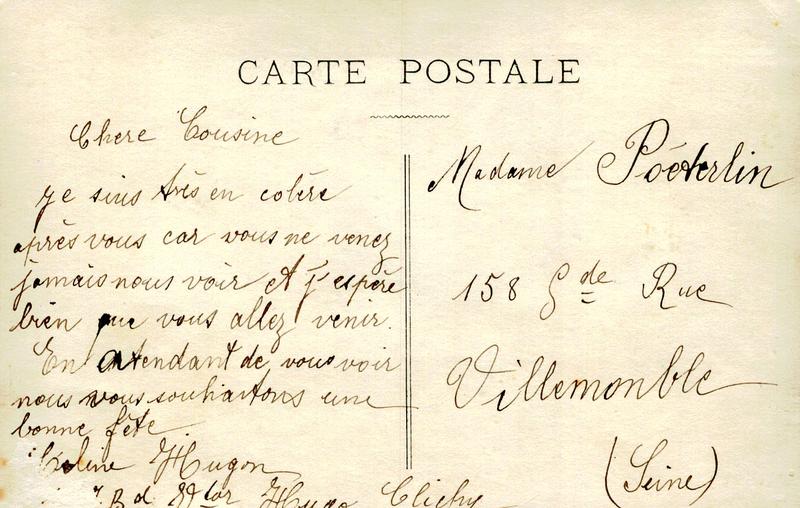 CARTE POSTALE
Chere Cousine
je suis très en colère
après vous car vous ne venez
jamais nous voir et j'espère
bien que vous allez venir.
En attendant de vous voir
nous vous souhaitons une
bonne fête
Hugon
Bd Vtor Hugo Clichy
Madame Poëterlin
158 Gde Rue
Villemonble
(Seine)